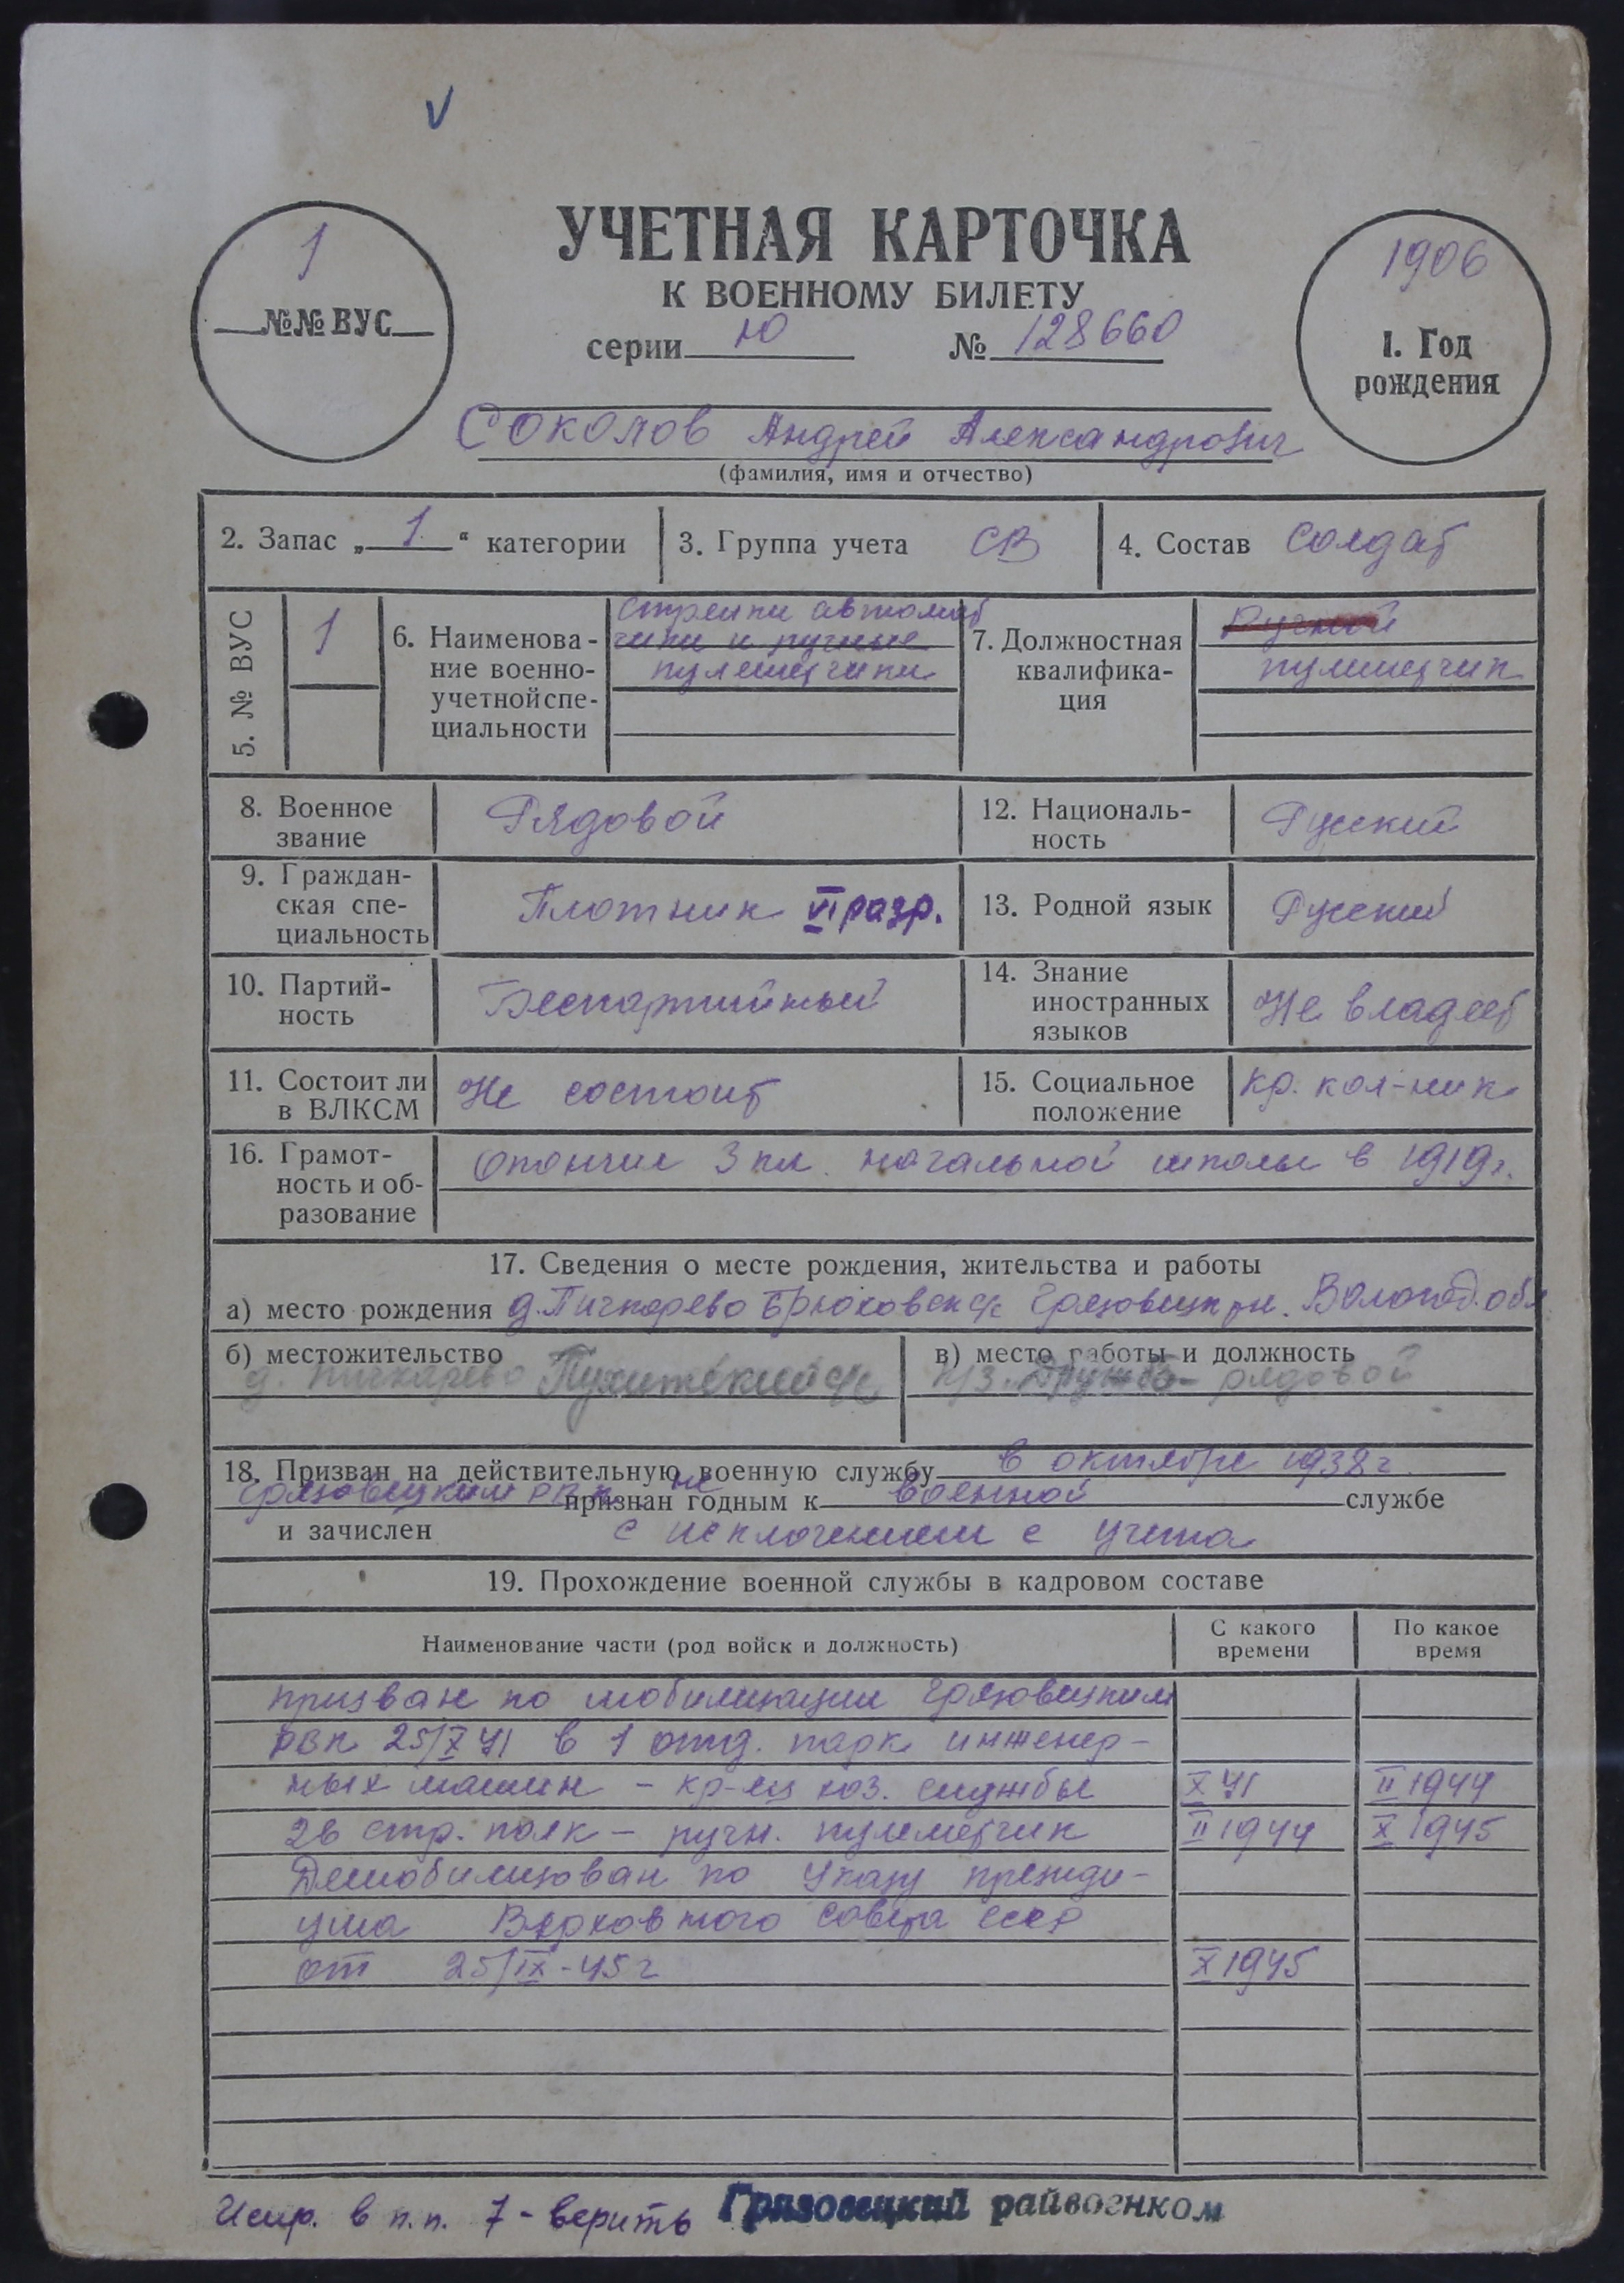 V
УЧЕТНАЯ КАРТОЧКА
К ВОЕННОМУ БИЛЕТУ
серии Ю № 128660
1
№№ ВУС
1906
1. Год
рождения
Соколов Андрей Александрович
(фамилия, имя и отчество)
2. Запас „1“ категории
3. Группа учета СВ
4. Состав Солдат
5. № ВУС 1
6. Наименова-
ние военно-
учетной спе-
циальности
Стрелки автомат
чики и ручные
пулеметчики
7. Должностная
квалифика-
ция
Ручной
пулеметчик
8. Военное
звание
Рядовой
12. Националь-
ность
Русский
9. Граждан-
ская спе-
циальность
Плотник VI разр.
13. Родной язык Русский
10. Партий-
ность
Беспартийный
14. Знание
иностранных
языков
Не владеет
11. Состоит ли
в ВЛКСМ
Не состоит
15. Социальное
положение
кр. кол-ник
16. Грамот-
ность и об-
разование
окончил 3 кл. начальной школы в 1919 г.
17. Сведения о месте рождения, жительства и работы
а) место рождения д. Пичкарево Брюховск с/с Грязовецк рн. Вологод. обл
б) местожительство
д. Пичкарево с/с
в) место работы и должность
к/з. Дружба - рядовой
18. Призван на действительную военную службу в октябре 1938 г.
Грязовецким РВК признан не годным к военной службе
и зачислен с исключением с учета
19. Прохождение военной службы в кадровом составе
Наименование части (род войск и должность)
С какого
времени
По какое
время
призван по мобилизации Грязовецким
РВК 25/X 41 в 1 отд. парк инженер-
ных машин - кр-ец хоз. службы X 41 II 1944
26 стр. полк - ручн. пулеметчик II 1944 X 1945
Демобилизован по Указу президи-
ума Верховного Совета СССР
от 25/IX-45 г X 1945
Испр. в п.п. 7 - верить Грязовецкий райвоенком